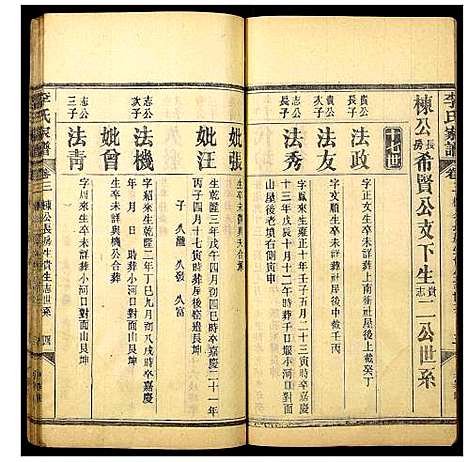 李氏家譜
卷三
棟公長房希賢公支下生貴志二公世系
十七世
貴公長子
法政
字正文生卒未詳葬上南衝社屋後上截癸丁
貴公次子
法友
字文順生卒未詳葬社屋後中截壬丙
志公長子
法秀
字鳳來生雍正十年壬子五月二十三寅時卒嘉慶
十三年戊辰十月十二戌時葬千日堰小河口對面
山屋後老墳右側寅申
妣張
生卒未詳與夫合葬
子 久融 久發 久富
妣汪
生乾隆三年戊午四月初四巳時卒嘉慶二十一年
丙子四月十七寅時葬屋後窑邊艮坤
志公次子
法機
字紹來生乾隆二年丁巳九月初八戌時卒嘉慶
年 月 日 時葬小河口對面山艮坤
妣曾
生卒未詳與機公合葬
志公三子
法青
字 周生卒未詳葬小河口對面山艮坤
李氏家譜
卷三
棟公長房生貴生志世系
四